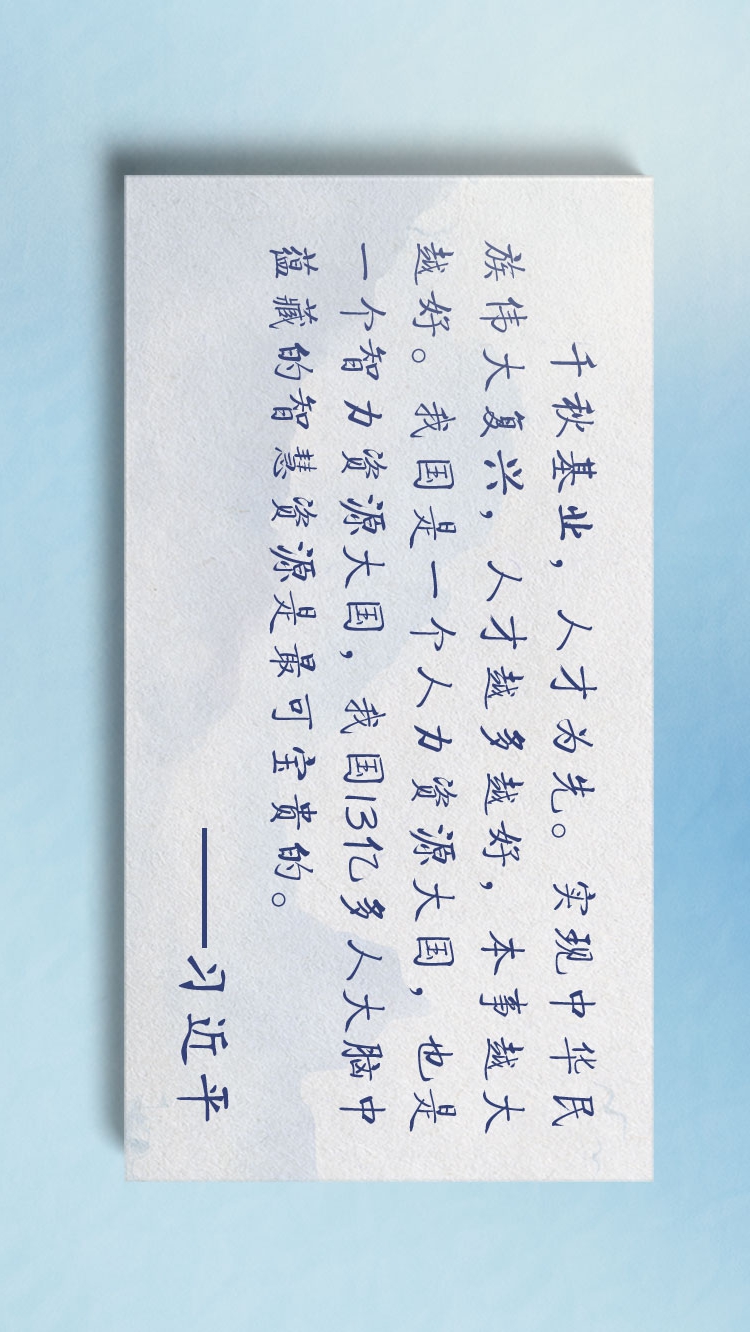 千秋基业，人才为先。实现中华民
族伟大复兴，人才越多越好，本事越大
越好。我国是一个人力资源大国，也是
一个智力资源大国，我国13亿多人大脑中
蕴藏的智慧资源是最可宝贵的。
——习近平